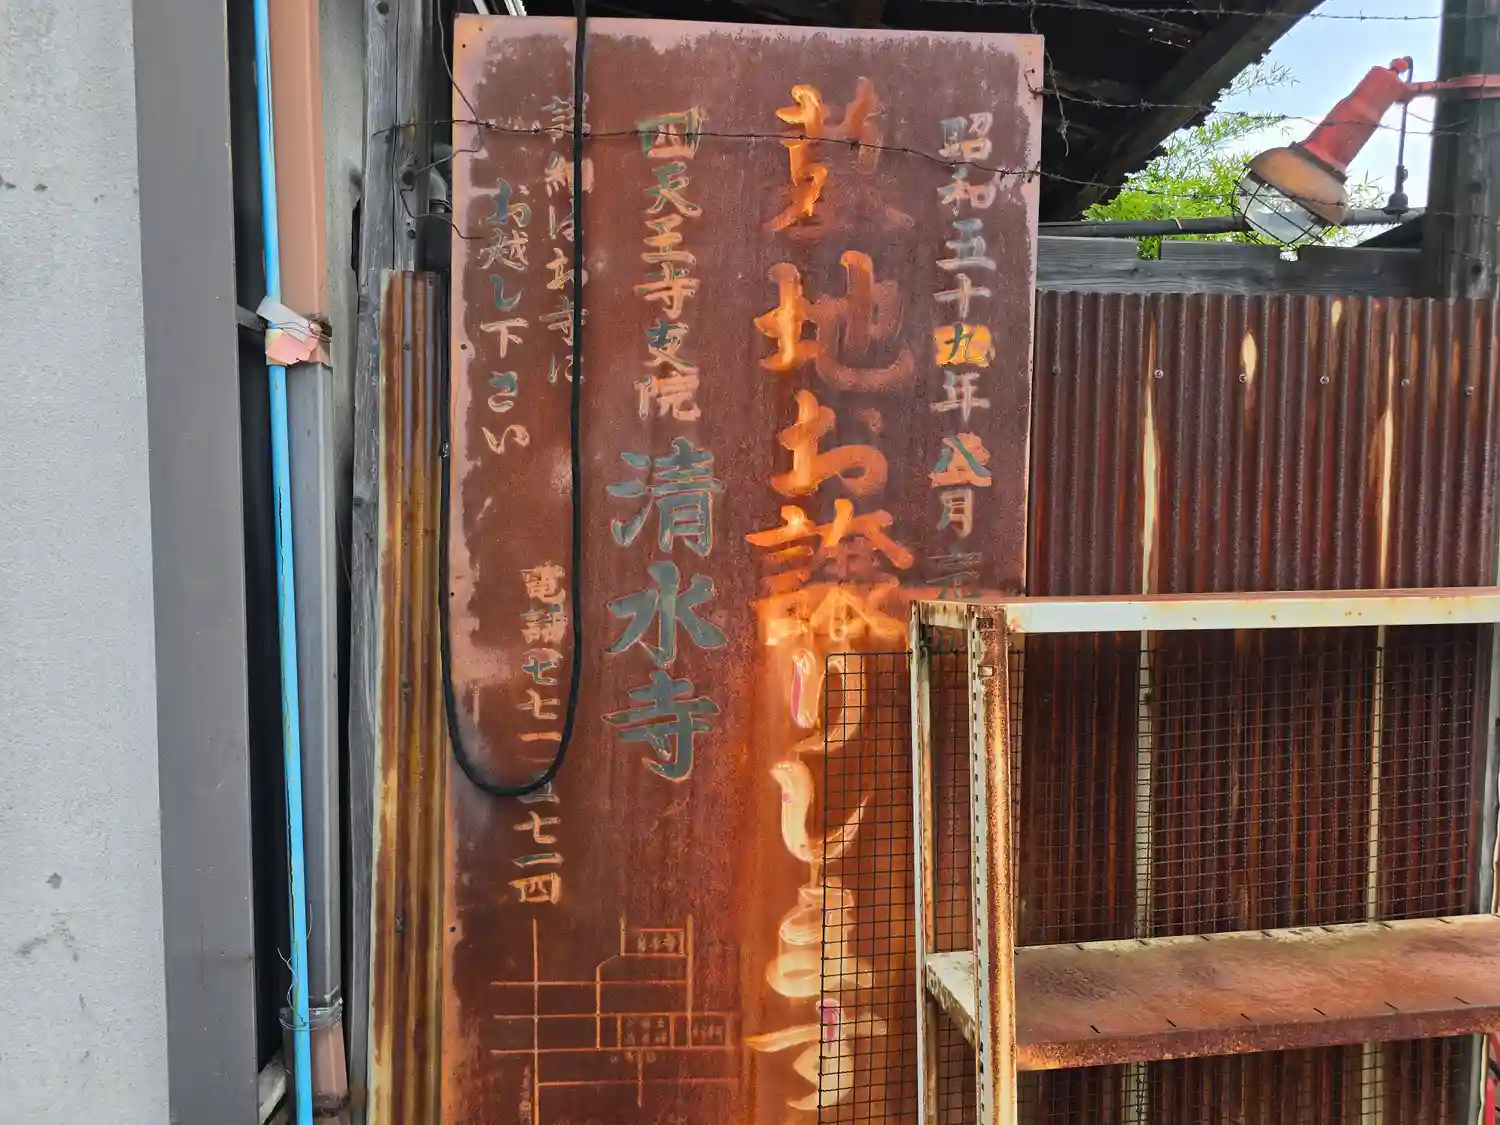 昭和五十九年八月
墓地お譲りします
四天王寺支院 清水寺
詳細はお寺に
お越し下さい
電話七七一
七一四